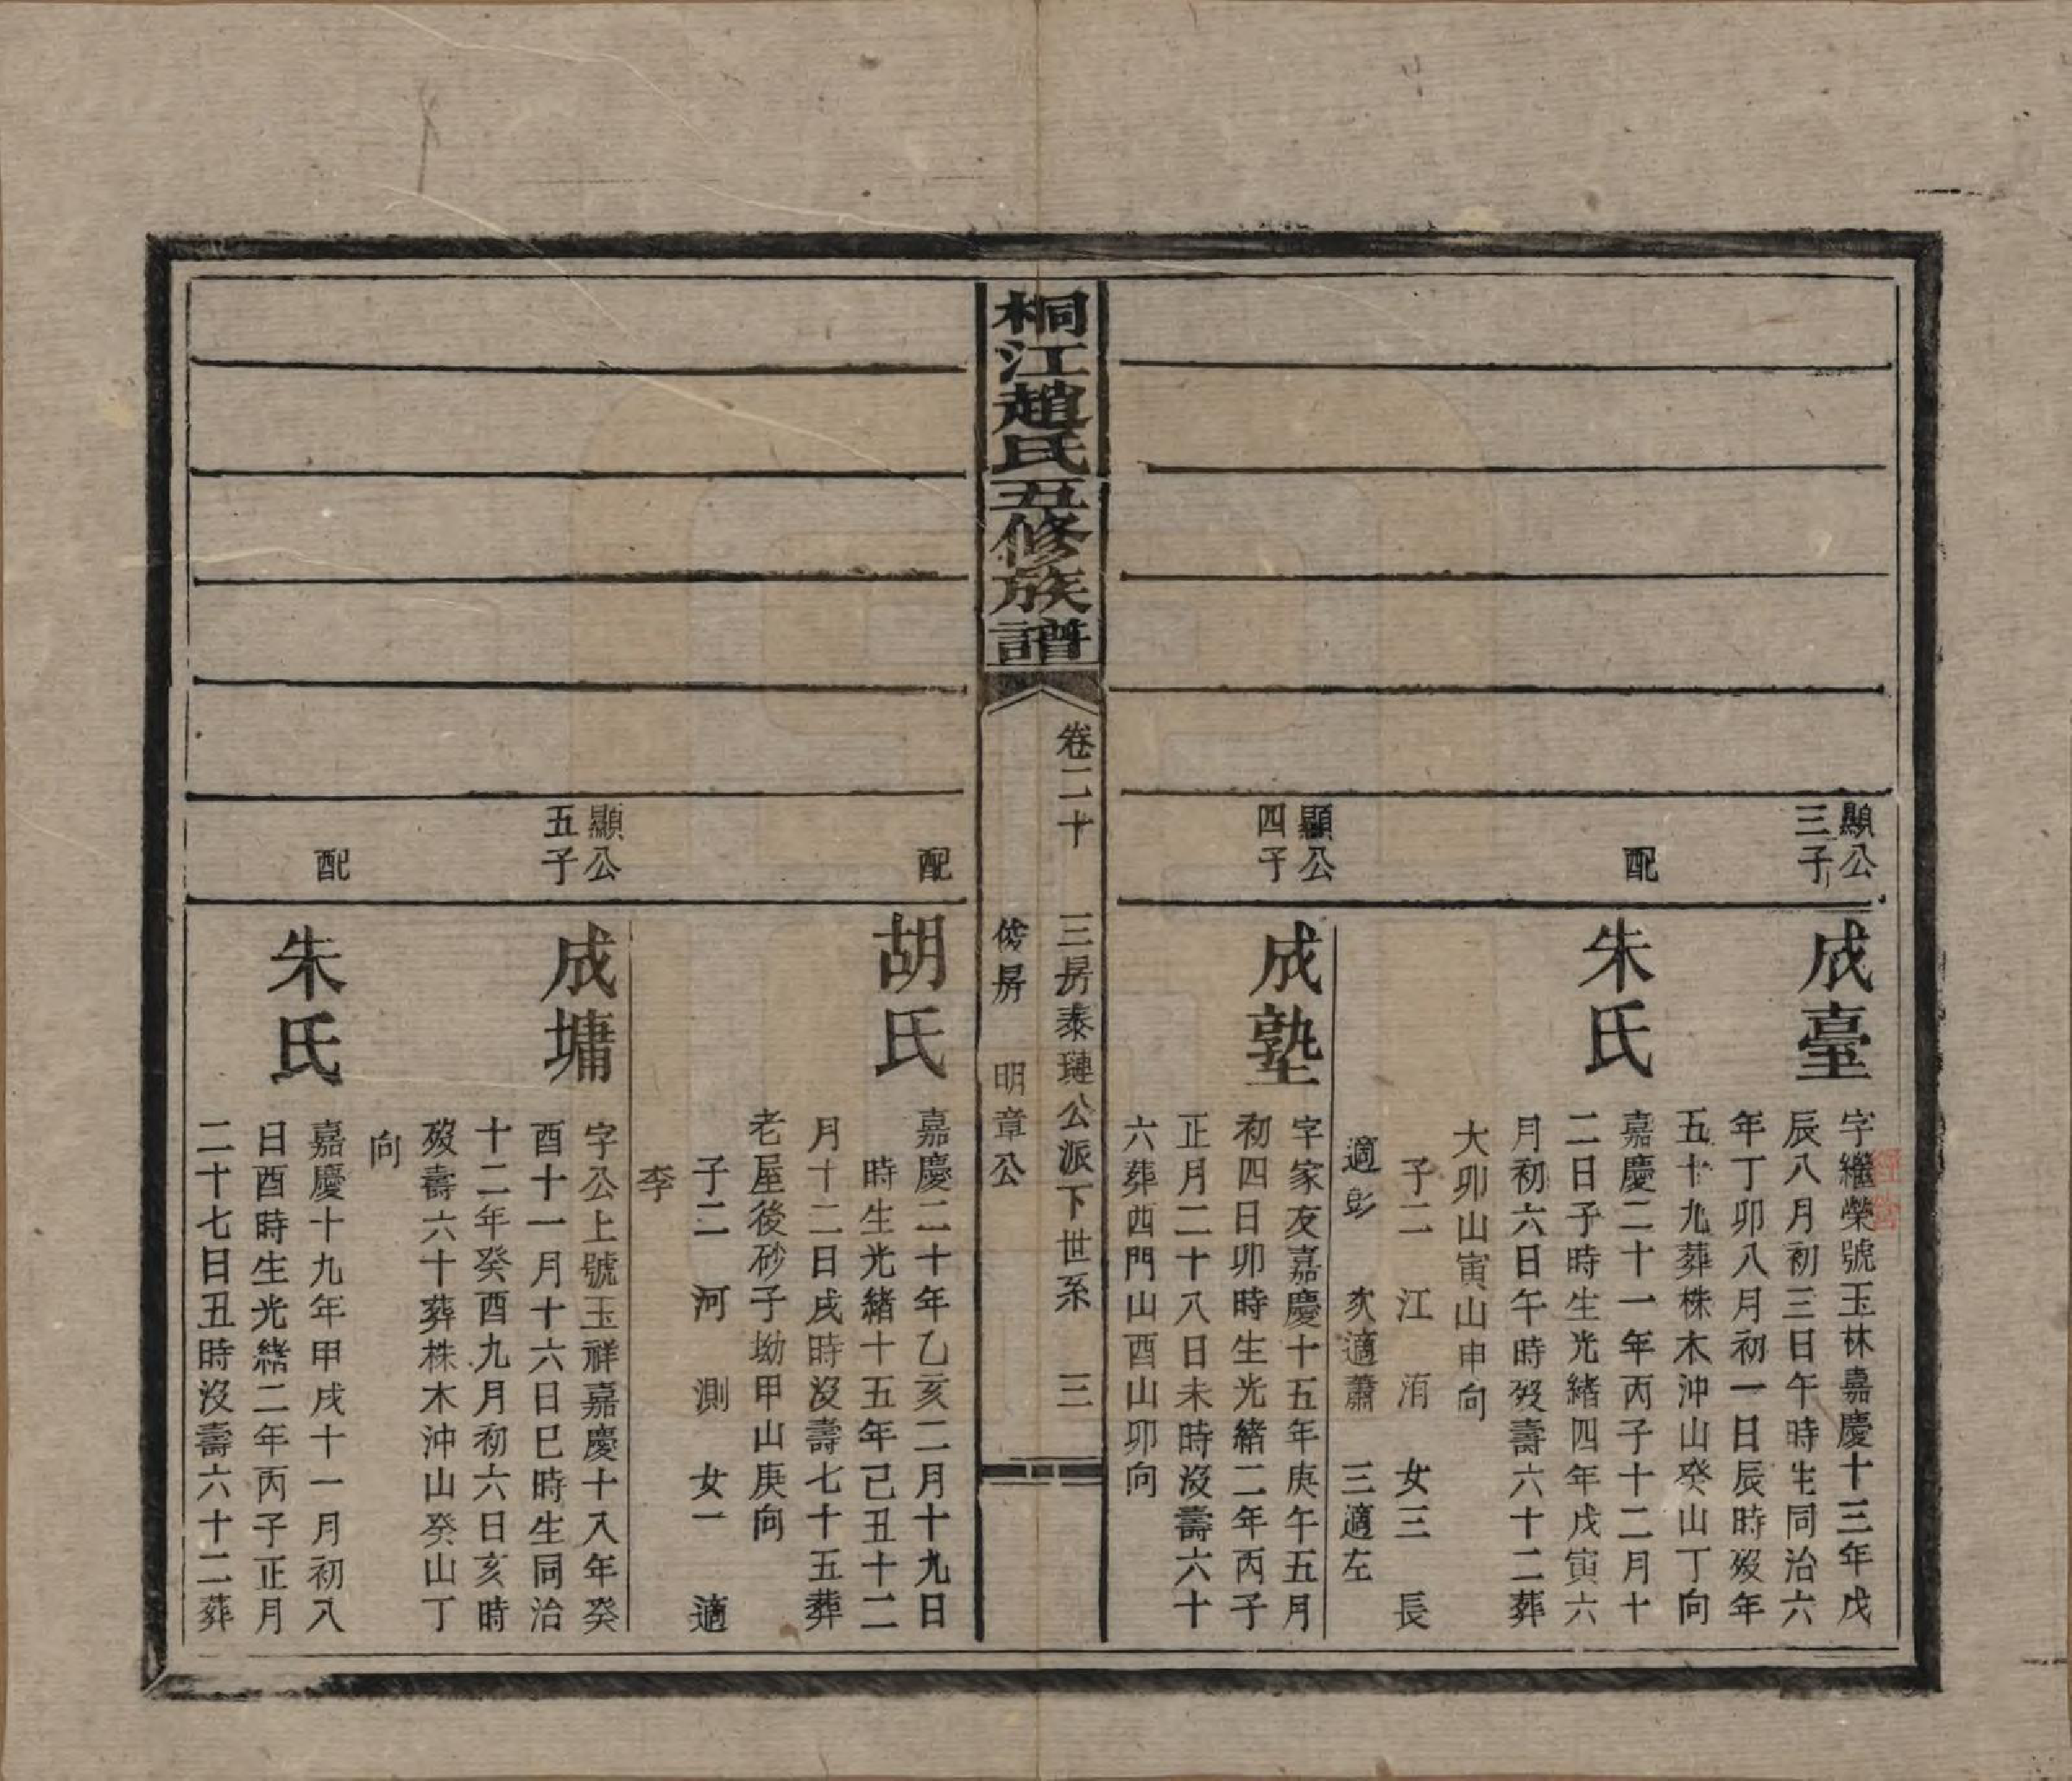 顯公
三子
成臺
字繼榮號玉林嘉慶十三年戊
辰八月初三日午時生同治六
年丁卯八月初一日辰時歿年
五十九葬株木沖山癸山丁向
配
朱氏
嘉慶二十一年丙子十二月十
二日子時生光緒四年戊寅六
月初六日午時歿壽六十二葬
大卯山寅山申向
子二 江 洧 女三 長
適彭 次適蕭 三適左
顯公
四子
成塾
字家友嘉慶十五年庚午五月
初四日卯時生光緒二年丙子
正月二十八日未時沒壽六十
六葬西門山酉山卯向
桐江趙氏五修族譜
卷二十 三房泰璉公派下世系 三
俊房 明章公
配
胡氏
嘉慶二十年乙亥二月十九日
時生光緒十五年己丑十二
月十二日戌時沒壽七十五葬
老屋後砂子坳甲山庚向
子二 河 測 女一 適
李
顯公
五子
成墉
字公上號玉祥嘉慶十八年癸
酉十一月十六日巳時生同治
十二年癸酉九月初六日亥時
歿壽六十葬株木沖山癸山丁
向
配
朱氏
嘉慶十九年甲戌十一月初八
日酉時生光緒二年丙子正月
二十七日丑時沒壽六十二葬